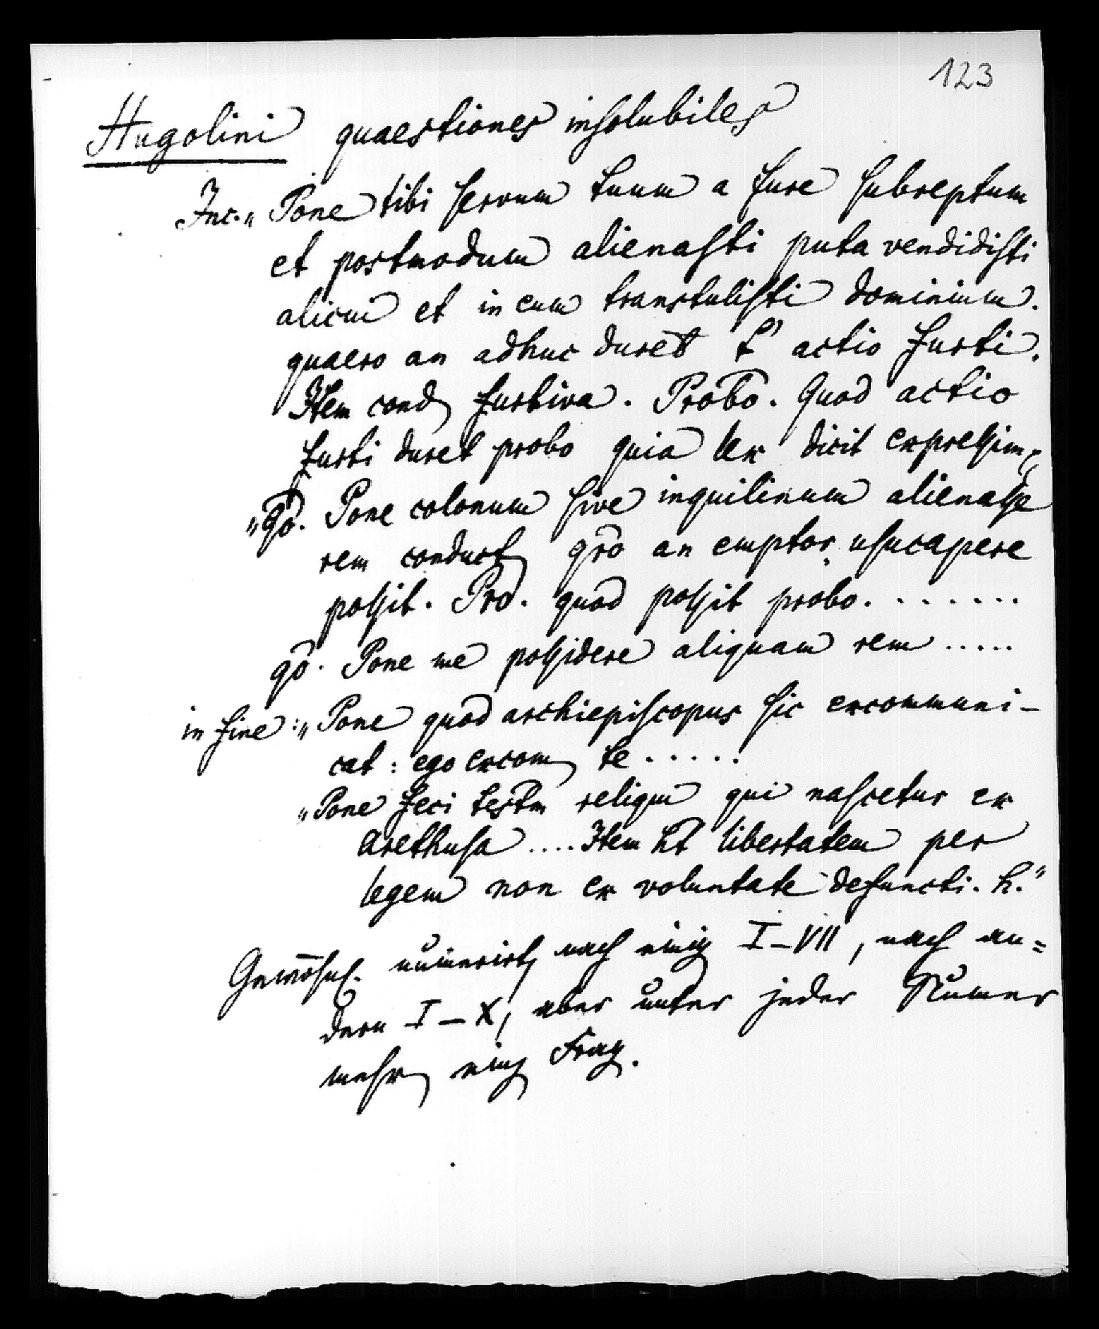 123
Hugolini quaestiones insolubiles
Inc. „Pone tibi servum tuum a fure subreptum
et postmodum alienasti puta vendidisti
alicui et in eum transtulisti dominium.
quaero an adhuc duret t' actio furti.
Item cond furtiva. Probo. Quod actio
furti duret probo quia lex dicit expressim
„qo. Pone colonum sive inquilinum alienasse
rem conduct qro an emptor usucapere
possit. Pro. quod possit probo. . . . . . .
qo. Pone me possidere aliquam rem .....
in fine: „Pone quod archiepiscopus sic excommuni-
cat: ego excom te . . . . .
„Pone feci testm reliqui qui nascetur ex
Arethusa .... Item ht libertatem per
legem non ex voluntate defuncti. h."
numerirt, nach einig I–VII, nach an=
dern I–X, aber unter jeder Numer
mehr einz Frag.